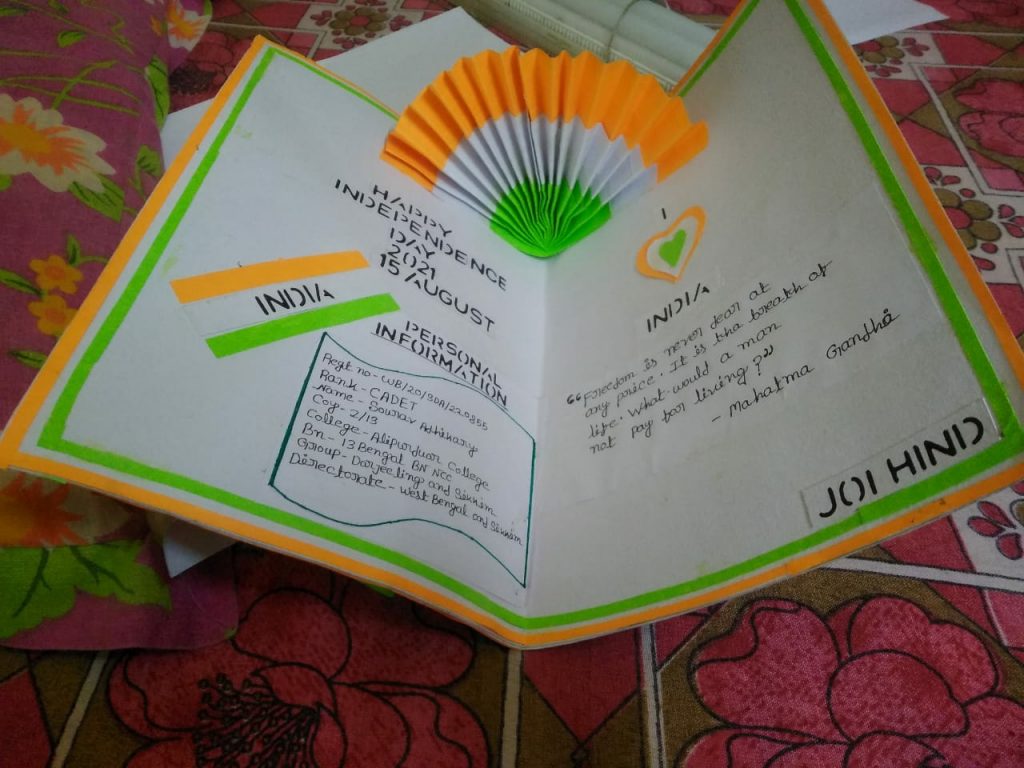 HAPPY
INDEPENDENCE
DAY
2021
15 AUGUST
INDIA
PERSONAL
INFORMATION
Regt no - WB/20/SDA/220855
Rank - CADET
Name - Sourav Adhikary
Coy - 2/13
College - Alipurduar College
Bn - 13 Bengal BN NCC
Group - Darjeeling and Sikkim
Directorate - West Bengal and Sikkim
I
INDIA
“Freedom is never dear at
any price. It is tha breath of
life. What would a man
not pay for living?”
- Mahatma Gandhi
JOI HIND